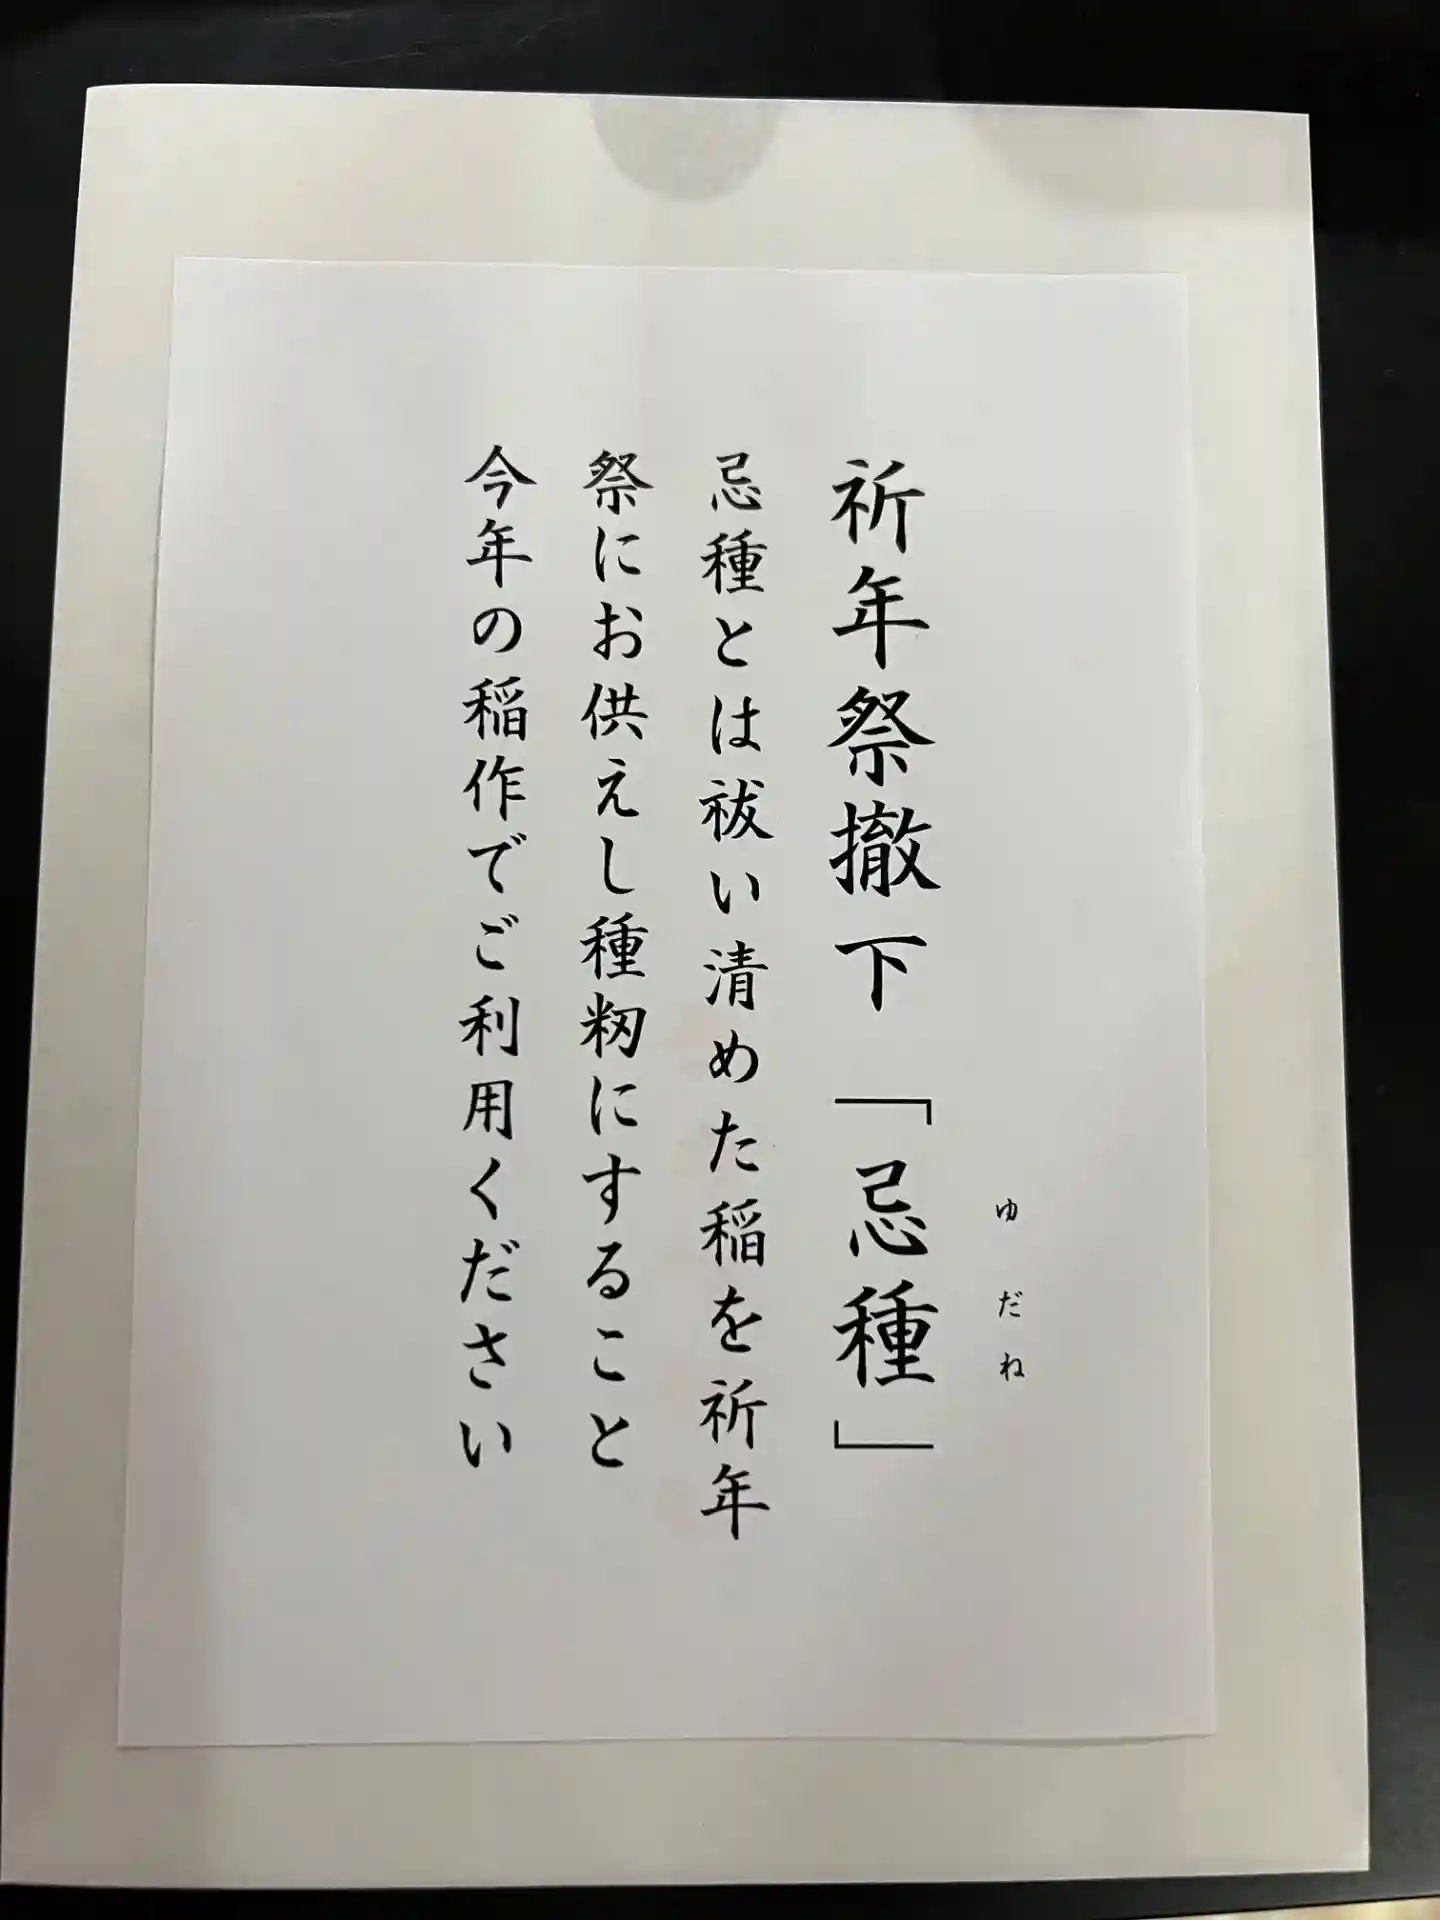 祈年祭撤下「忌種」
ゆだね
忌種とは祓い清めた稲を祈年
祭にお供えし種籾にすること
今年の稲作でご利用ください